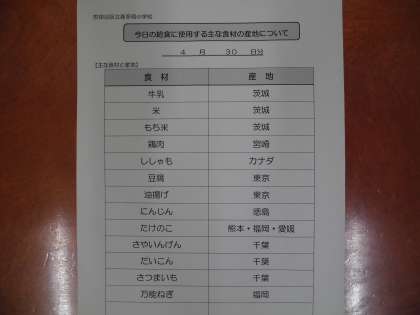 今日の給食に使用する主な食材の産地について
4 月 30 日分
【主な食材と産地】
食 材 産 地
牛乳 茨城
米 茨城
もち米 茨城
鶏肉 宮崎
ししゃも カナダ
豆腐 東京
油揚げ 東京
にんじん 徳島
たけのこ 熊本・福岡・愛媛
さやいんげん 千葉
だいこん 千葉
さつまいも 千葉
万能ねぎ 福岡